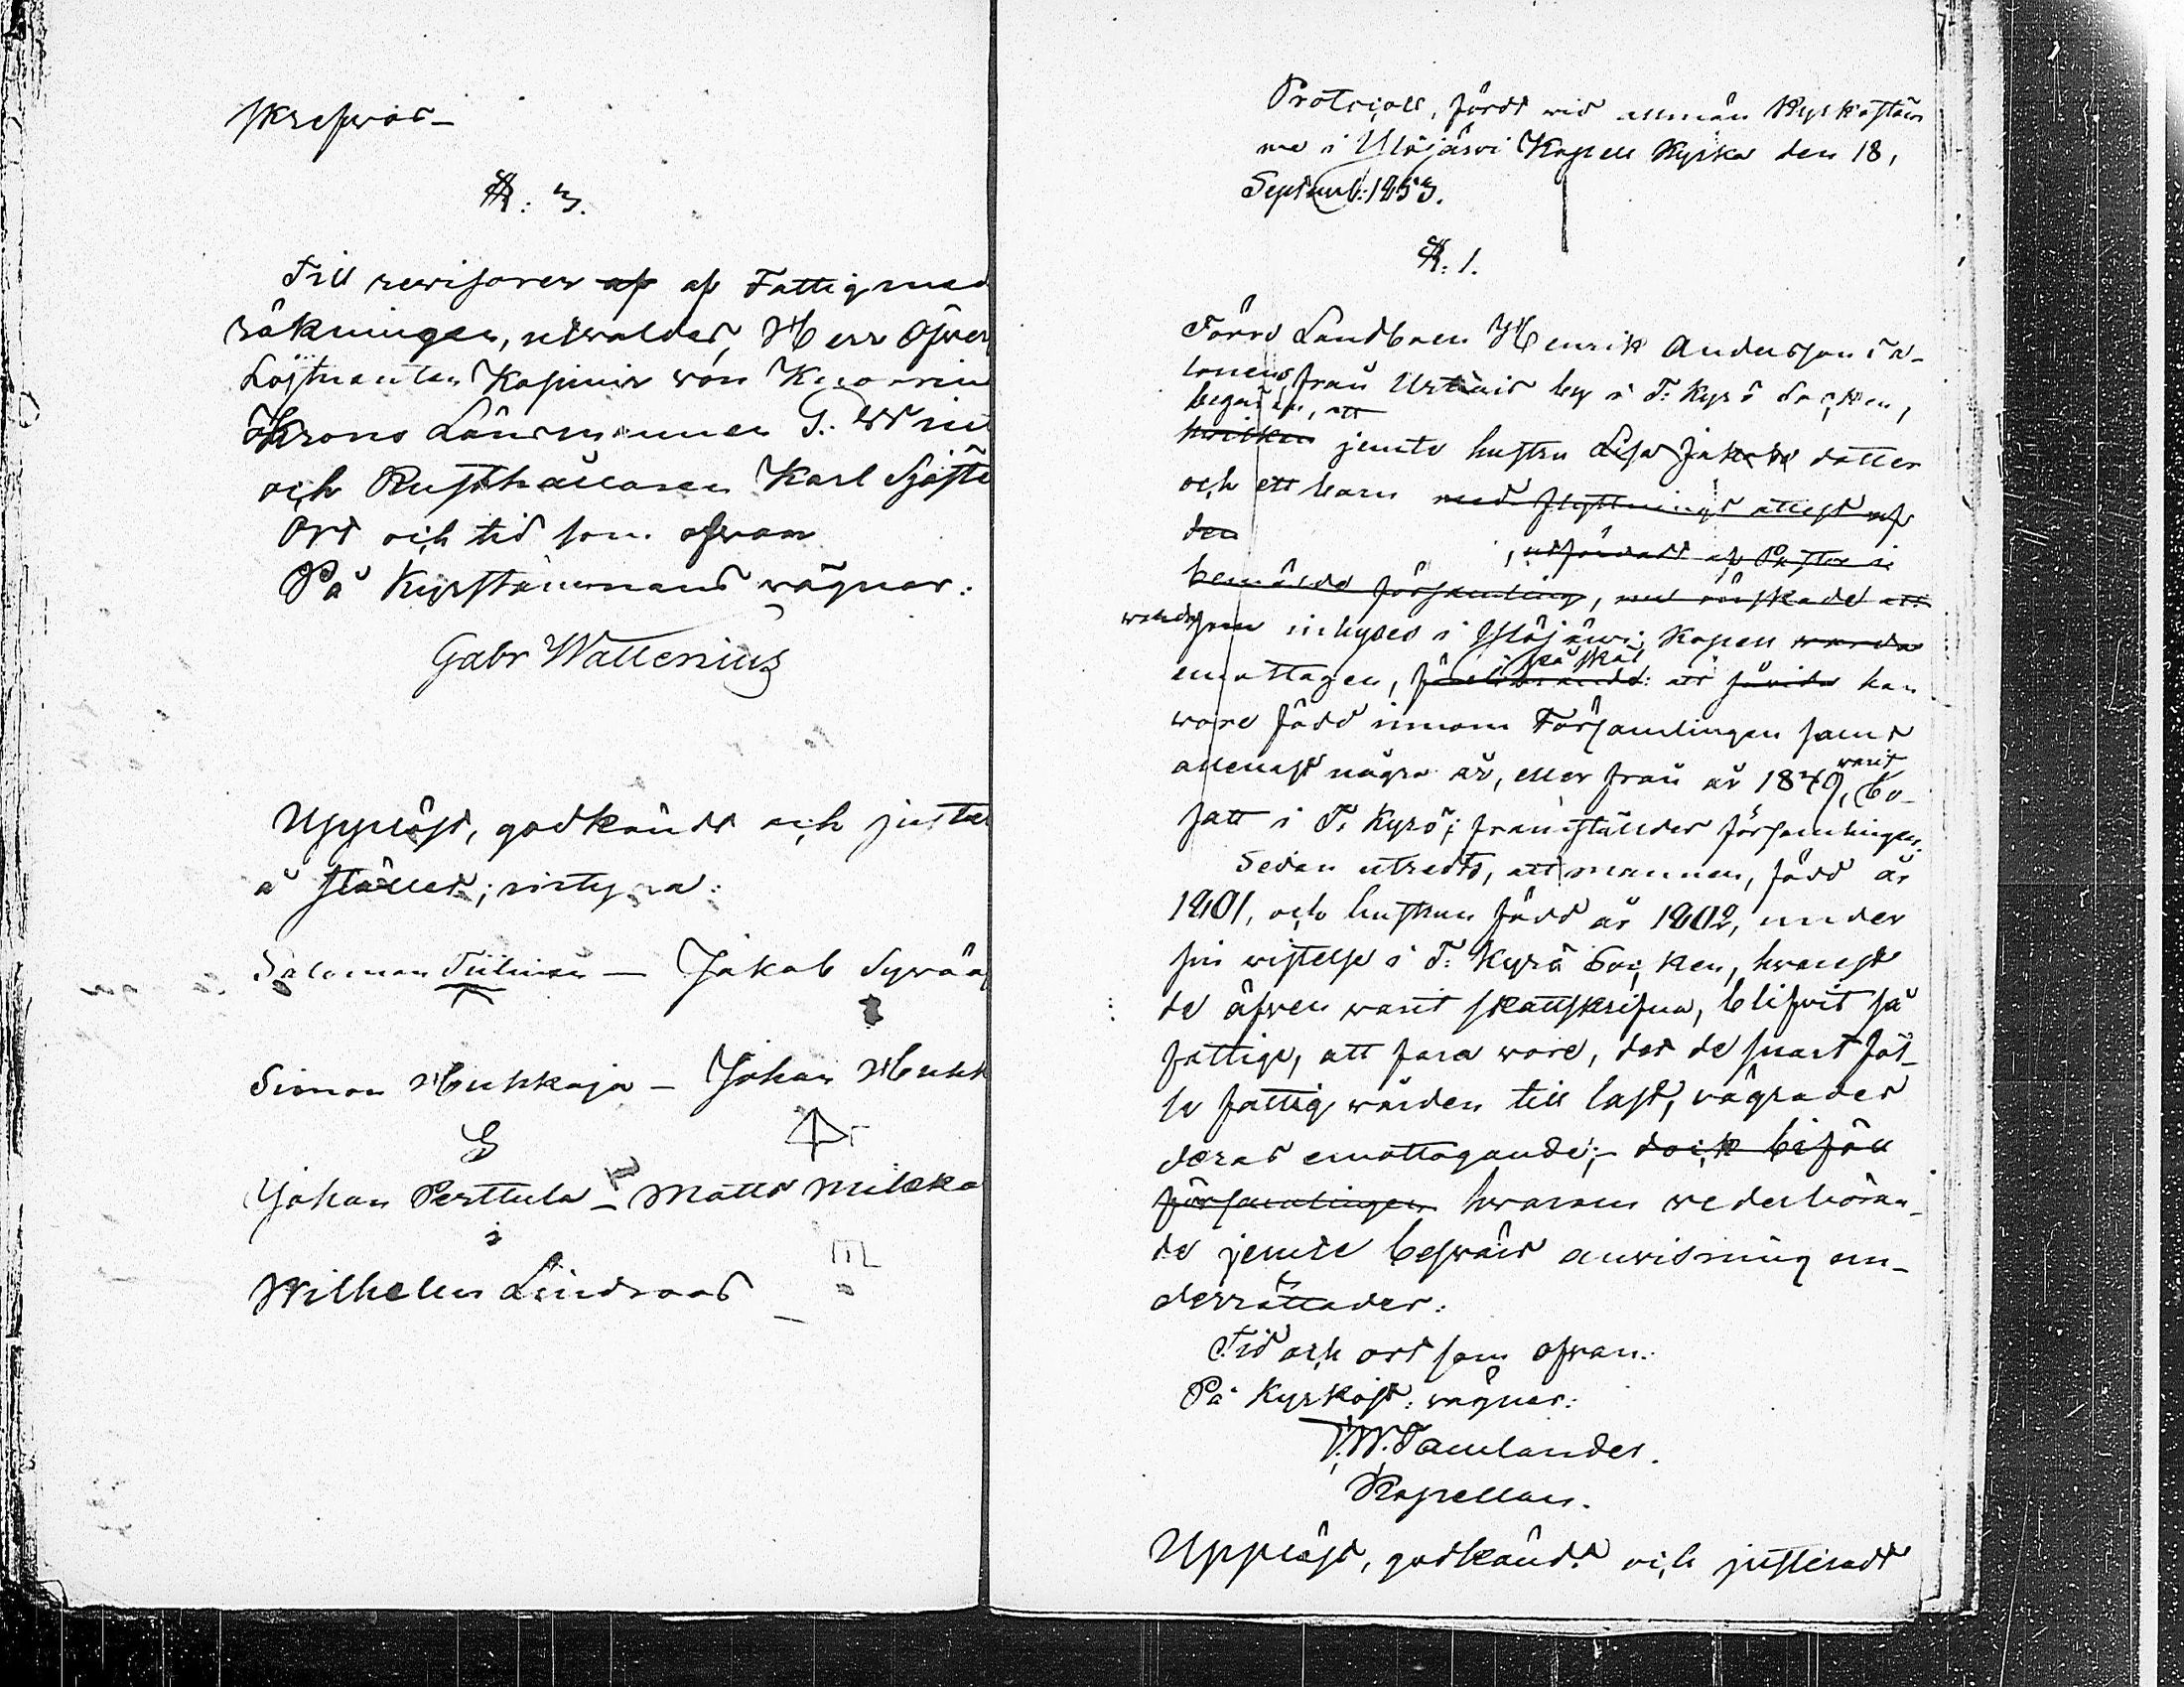 skrefvos_
§: 3.
Till revisorer af af Fattig med
räkningen, utvaldes, Herr Öfver
Löjtnanten Kasimir von Knorrin
Krono Länsmannen G. W
och Rusthållaren Karl Sjöste
Ort och tid som ofvan
På Kyrkstämmans vägnar:
Gabr Wallenius
Uppläst, godkändt och juster
å stället; intyga:
Salomon Tiilinen — Jakob Syvä
Simon Huhkaja — Johan Huhk
Johan Perttula — Matts Mikka
Wilhelm Lindroos _
Protocoll, fördt vid allmän Kyrkostäm
ma i Ylöjärvi Kapell Kyrka den 18,
Septemb: 1853.
§. 1.
Förre Landboen Henrik Andersson
från by i T: Kyrö Socken,
begäran, att
hvilken jemte hustru Lisa Jakobs dotter
och ett barn med flyttnings attest af
den
, utfärdadt af Pastor i
bemälde församling, nu önskade att
inhyses i Ylöjärvi Kapell varda
på skäl
emottagen, att han
vore född innom Församlingen samt
varit
allenast några år, eller från år 1849, bo-
satt i T. Kyrö; framställdes församlingen.
Sedan utredts, att mannen, född år
1801, och hustrun född år 1802, under
sin vistelse i T: Kyrö Socken, hvarest
de äfven varit skattskrifna, blifvit så
fattige, att fara vore, det de snart föl-
le fattig vården till last, vägrades
deras emottagande; dock biföll
församlingen hvarom vederböran-
de jemte besvärs anvisning un-
derrättades.
Tid och ort som ofvan.
På Kyrkost: vägnar:
T. W. Tamlander.
Kapellan.
Uppläst, godkändt och justeradt